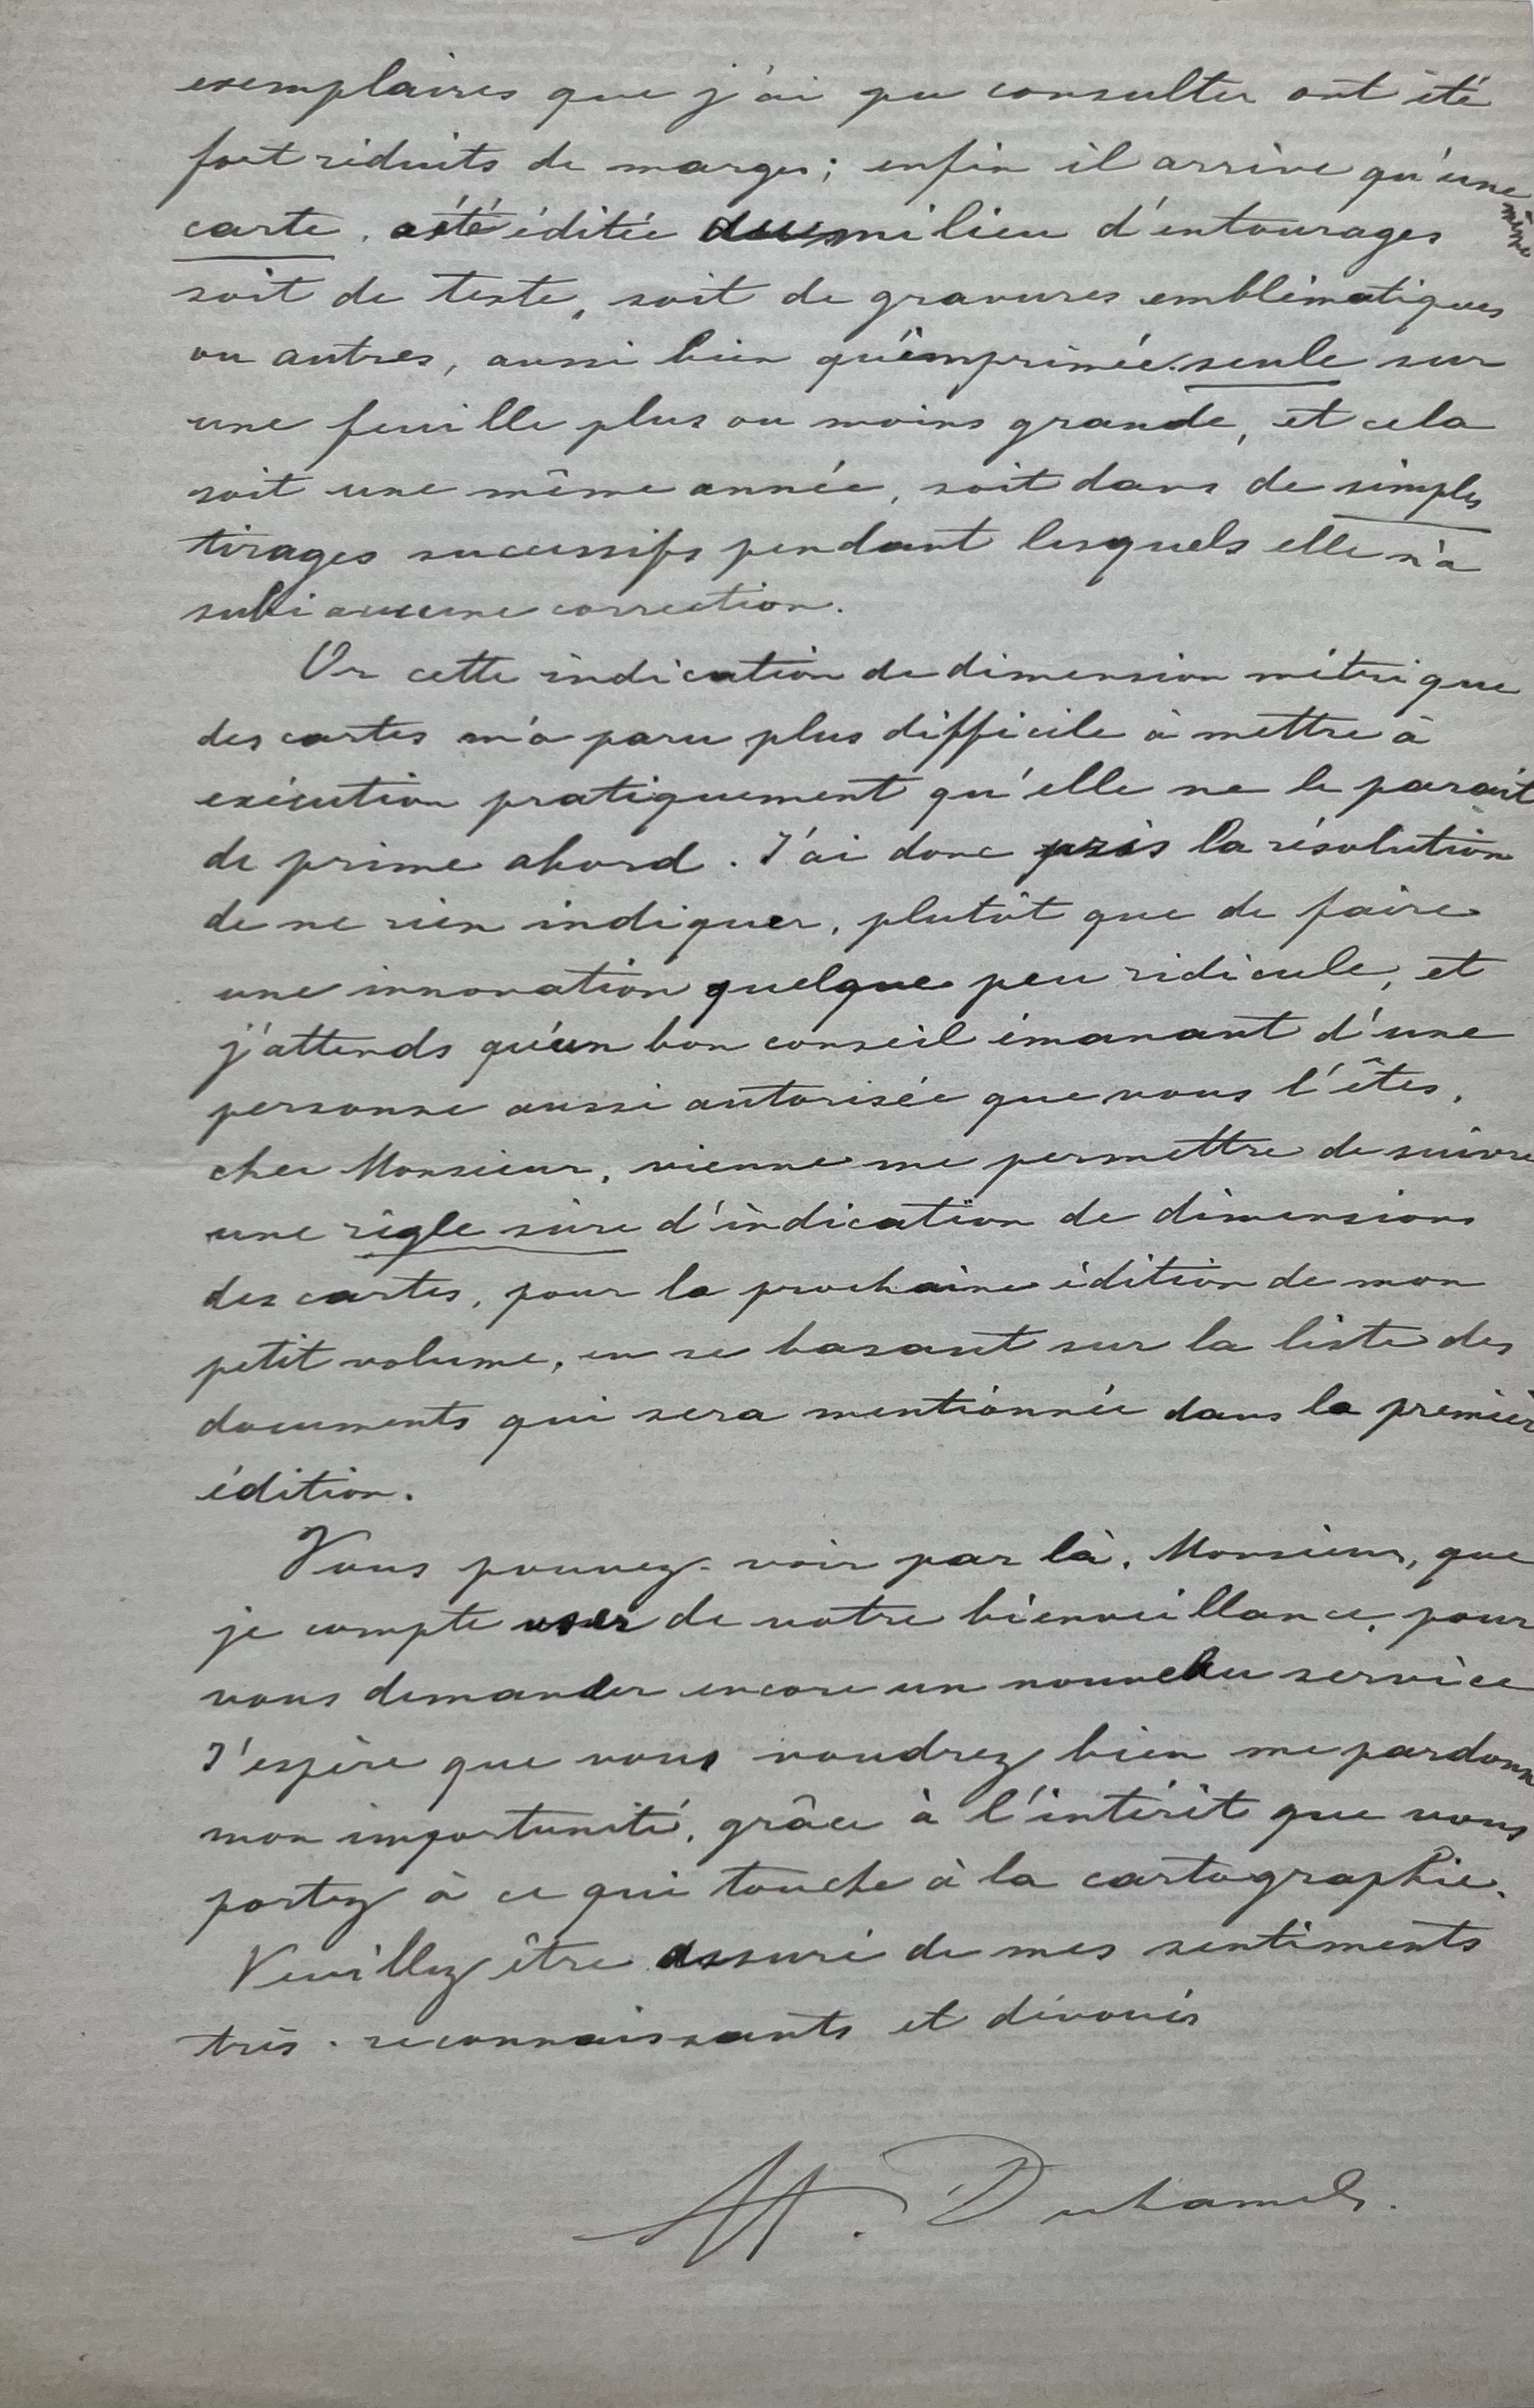 exemplaires que j'ai pu consulter ont été
fort réduits de marges ; enfin il arrive qu'une même
carte, a été éditée au milieu d'entourages
soit de texte, soit de gravures emblématiques
ou autres, aussi bien qu'imprimée seule sur
une feuille plus ou moins grande, et cela
soit une même année, soit dans de simples
tirages successifs pendant lesquels elle n'a
subi aucune correction.
Or cette indication de dimension métrique
des cartes m'a paru plus difficile à mettre à
exécution pratiquement qu'elle ne le parait
de prime abord. J'ai donc pris la résolution
de ne rien indiquer, plutôt que de faire
une innovation quelque peu ridicule, et
j'attends qu'un bon conseil émanant d'une
personne aussi autorisée que vous l'êtes,
cher Monsieur, vienne me permettre de suivre
une règle sûre d'indication de dimensions
des cartes, pour la prochaine édition de mon
petit volume, en se basant sur la liste des
documents qui sera mentionnée dans la premièr
édition.
Vous pouvez voir par là, Monsieur, que
je compte user de votre bienveillance, pour
vous demander encore un nouveau service
J'espère que vous voudrez bien me pardonn
mon importunité, grâce à l'intérêt que vous
portez à ce qui touche à la cartographie.
Veuillez être assuré de mes sentiments
très reconnaissants et dévoués
H. Duhamel.